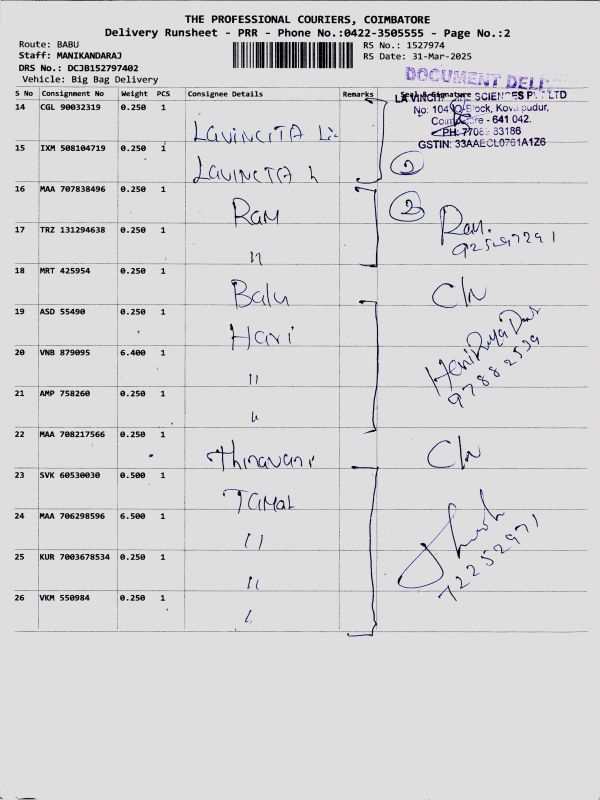 THE PROFESSIONAL COURIERS, COIMBATORE
Delivery Runsheet - PRR - Phone No.:0422-3505555 - Page No.:2
Route: BABU
Staff: MANIKANDARAJ
DRS No.: DCJB152797402
Vehicle: Big Bag Delivery
RS No.: 1527974
RS Date: 31-Mar-2025
DOCUMENT
S No Consignment No Weight PCS Consignee Details Remarks Seal & Signature
SCIENCES
No: 104
Block, Kovaipudur,
Coimbatore - 641 042.
PH: 7708 83186
GSTIN: 33AAECL0761A1Z6
14 CGL 90032319 0.250 1
15 IXM 508104719 0.250 1
1
16 MAA 707838496 0.250 1 Ram
2
17 TRZ 131294638 0.250 1 "
Ram.
18 MRT 425954 0.250 1 Balu
19 ASD 55490 0.250 1 Hari
20 VNB 879095 6.400 1 "
21 AMP 758260 0.250 1 "
22 MAA 708217566 0.250 1
23 SVK 60530030 0.500 1 Tamal
24 MAA 706298596 6.500 1 "
72252971
25 KUR 7003678534 0.250 1 "
26 VKM 550984 0.250 1 "